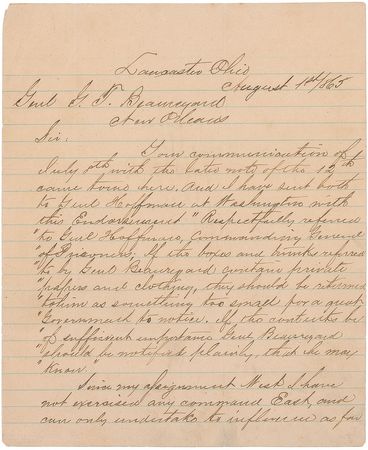 Lancaster Ohio
August 1st/1865
Genl G. T. Beauregard
New Orleans
Sir:
Your communication of
July 8th with the note of the 12th
came home here. And I have sent both
to Genl Hoffman at Washington with
this Endorsement "Respectfully referred
"to Genl Hoffman, Commanding General
"of Prisoners. If the boxes and trunks referred
"to by Genl Beauregard contain private
"papers and clothing, they should be returned
"to him as something too small for a great
"Government to notice. If the contents be
"of sufficient importance Genl Beauregard
"should be notified plainly, that he may
"Know."
Since my assignment West I have
not exercised any command East, and
can only undertake to influence as far